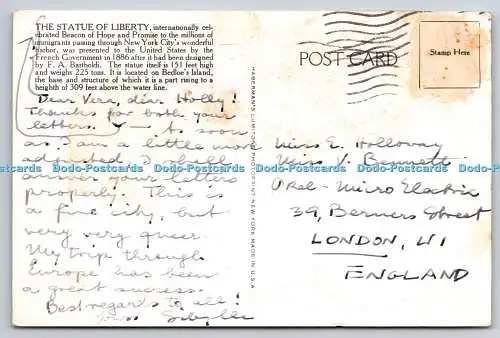 THE STATUE OF LIBERTY, internationally cel-
ebrated Beacon of Hope and Promise to the millions of
immigrants passing through New York City's wonderful
harbor, was presented to the United States by the
French Government in 1886 after it had been designed
by F. A. Bartholdi. The statue itself is 151 feet high
and weighs 225 tons. It is located on Bedloe's Island,
the base structure of which it is a part rising to a
height of 309 feet above the water line.
POST CARD
Stamp Here
Dear Vera, dear Holly!
Thanks for both your
letters. As soon
as I am a little more
adjusted I shall
answer your letters
properly. This is
a fine city, but
very very queer.
My trip through
Europe has been
a great success.
Best regards to all!
Yours Sibylle
MADE IN U.S.A.
Miss E. Holloway
Miss V. Bennett
Micro Electric
39, Berners Street
LONDON, W1
ENGLAND
www.postcard.com
www.postcard.com
www.postcard.com